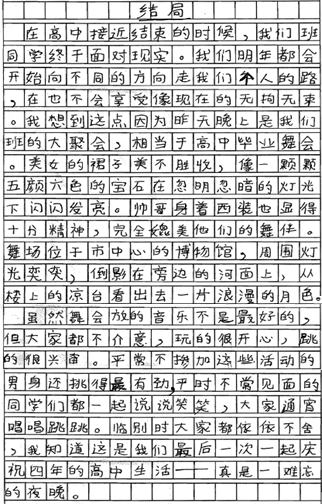 结局
在高中接近结束的时候，我们班
同学终于面对现实。我们明年都会
开始向不同的方向走我们个人的路
，在也不会享受像现在的无拘无束
。我想到这点因为昨天晚上是我们
班的大聚会，相当于高中毕业舞会
。美女的裙子美不胜收，像一颗颗
五颜六色的宝石在忽明忽暗的灯光
下闪闪发亮。帅哥身着西装也显得
十分精神，完全媲美他们的舞伴。
舞场位于市中心的博物馆，周围灯
光奕奕，倒影在旁边的河面上，从
楼上的凉台看出去一片浪漫的月色。
虽然舞会放的音乐不是最好的，
但大家都不介意，玩的很开心，跳
的很兴奋。平常不参加这些活动的
男身还挑得最有劲，平时不常见面的
同学们都一起说说笑笑，大家通宵
唱唱跳跳。临别时大家都依依不舍
，我知道这是我们最后一次一起庆
祝四年的高中生活——真是一难忘
的夜晚。